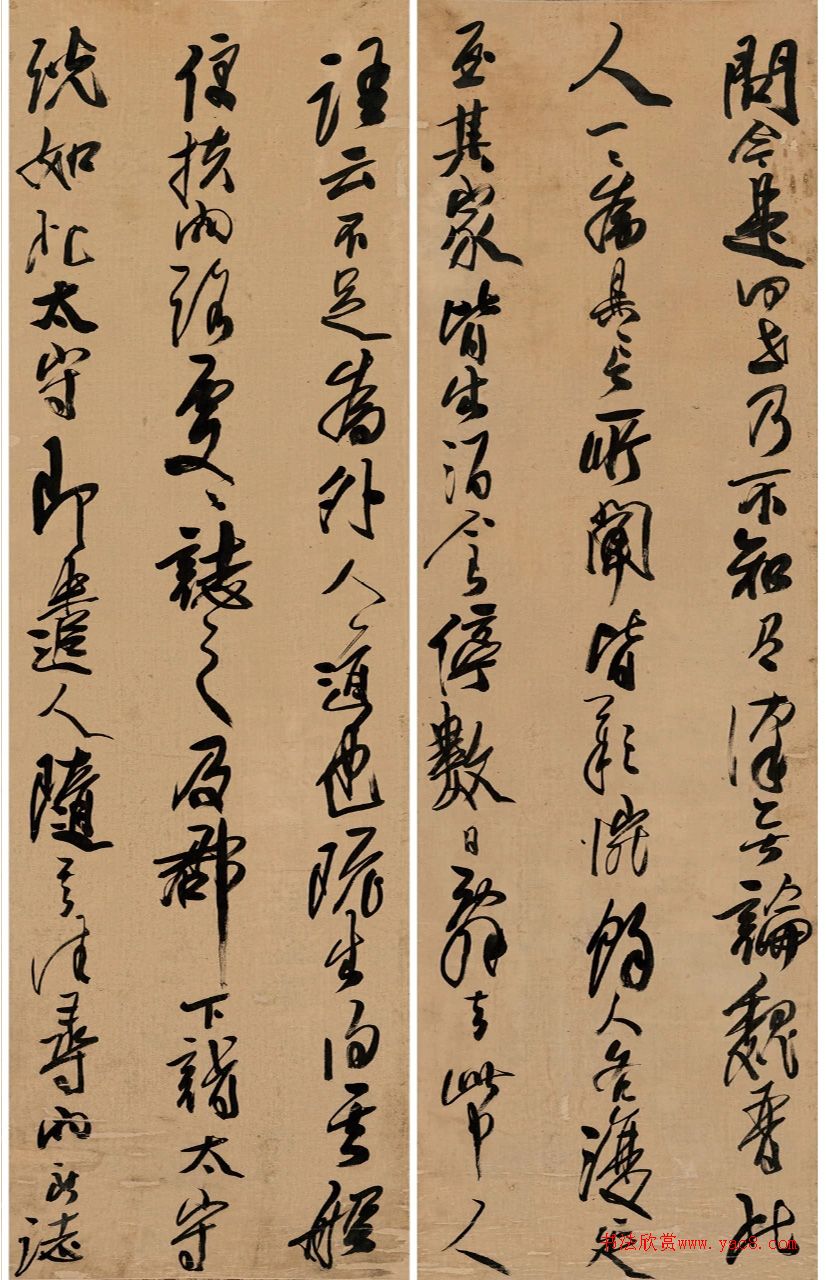 問今是何世乃不知有漢無論魏晉此
人一〻為具言所聞皆歎惋餘人各復延
至其家皆出酒食停數日辭去此中人
語云不足為外人道也既出得其船
便扶向路處〻誌之及郡下詣太守
說如此太守即遣人隨其往尋向所誌
书法欣赏www.yac8.com